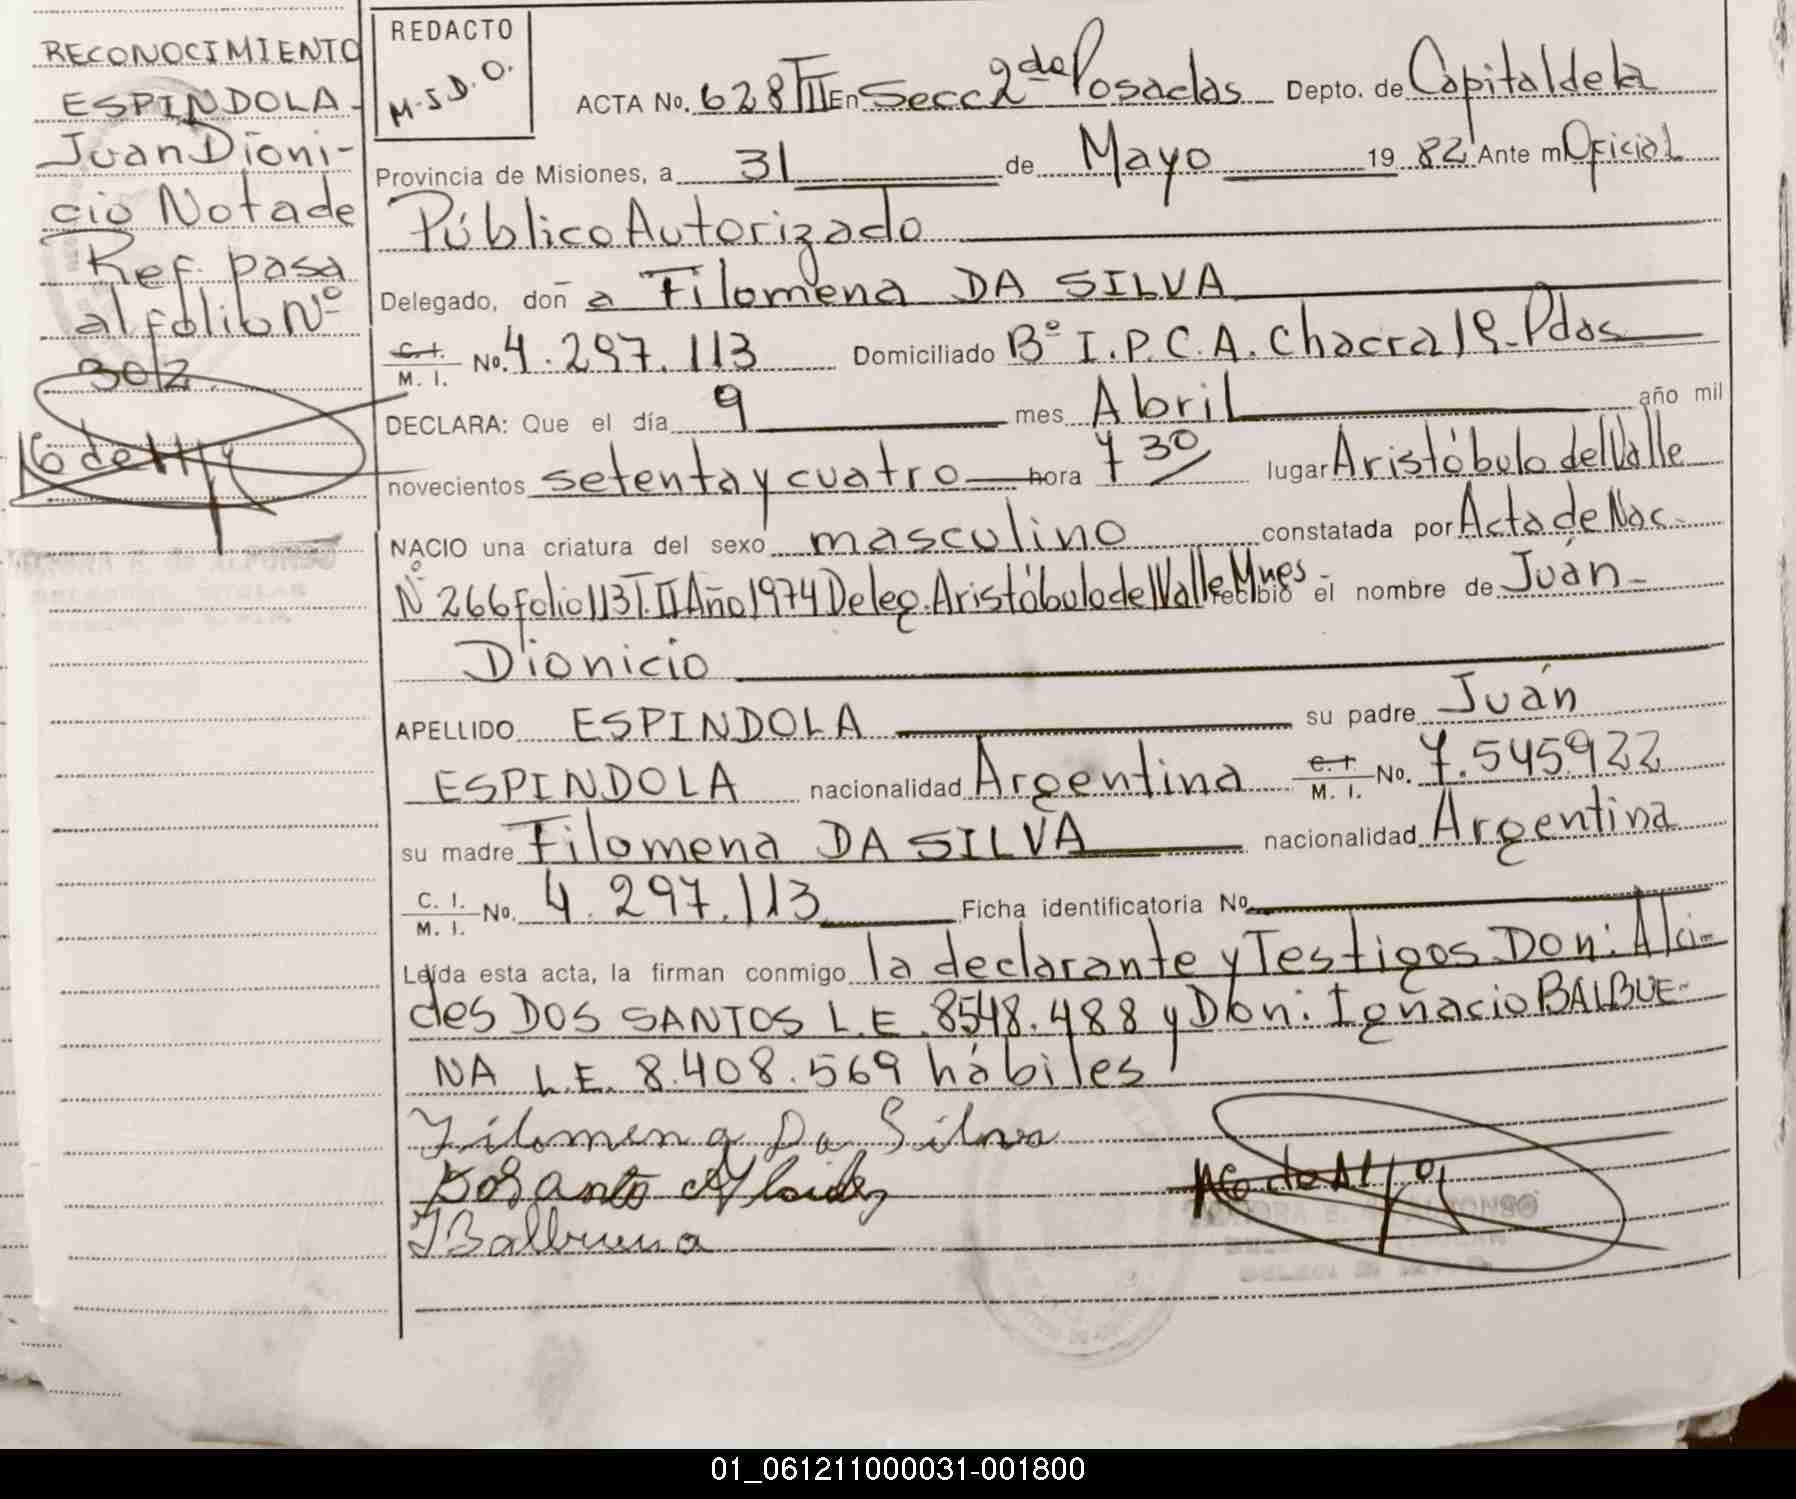 RECONOCIMIENTO
ESPINDOLA
Juan Dioni-
cio Nota de
Ref. pasa
al folio Nº
302
REDACTO
M.S.D.O.
ACTA No. 628 TII En Secc 2da Posadas Depto. de Capital de la
Provincia de Misiones, a 31 de Mayo 19 82 Ante mi Oficial
Público Autorizado
Delegado, doña Filomena DA SILVA
C.I. M. I. No. 4.297.113 Domiciliado Bº I.P.C.A. Chacra 19-Pdas
DECLARA: Que el día 9 mes Abril año mil
novecientos setenta y cuatro hora 7 30 lugar Aristóbulo del Valle
NACIO una criatura del sexo masculino constatada por Acta de Nac.
Nº 266 folio 113 T.II Año 1974 Deleg. Aristóbulo del Valle Mnes - recibió el nombre de Juan-
Dionicio
APELLIDO ESPINDOLA su padre Juan
ESPINDOLA nacionalidad Argentina C.I. M. I. No. 7.545922
su madre Filomena DA SILVA nacionalidad Argentina
C. I. M. I. No. 4.297.113 Ficha identificatoria No
Leída esta acta, la firman conmigo la declarante y Testigos Don: Alci-
des DOS SANTOS L.E. 8548.488 y Don: Ignacio BALBUE-
NA L.E. 8.408.569 hábiles
Filomena Da Silva
Dosanto Alcides
I Balbuena
01_061211000031-001800